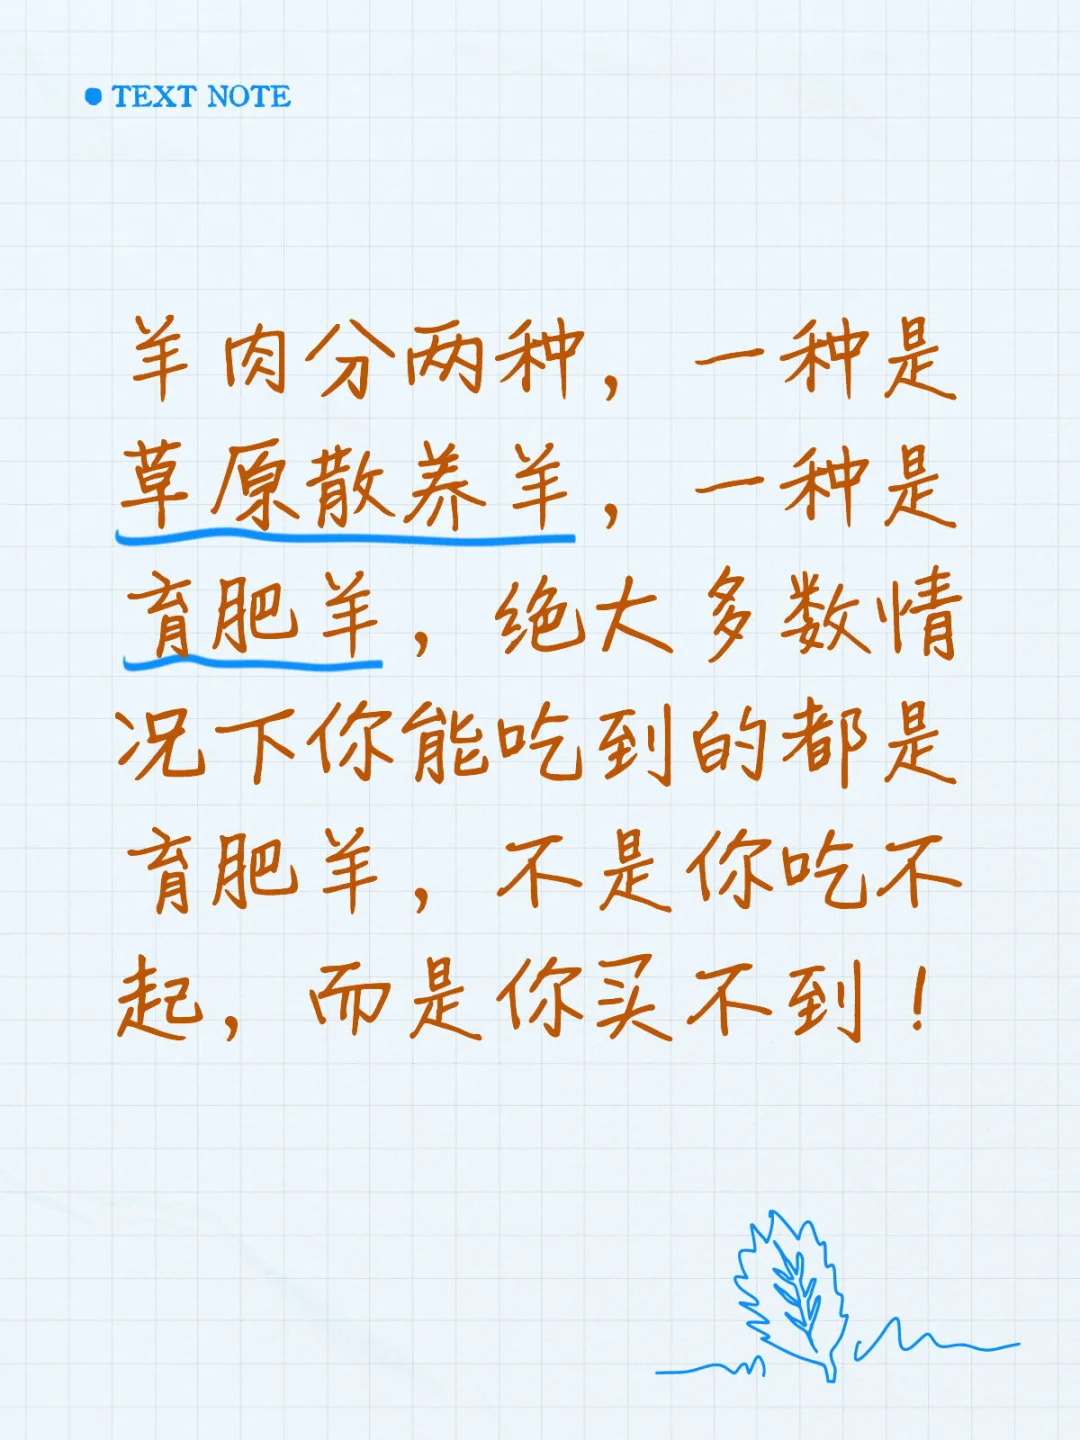 TEXT NOTE
羊肉分两种，一种是
草原散养羊，一种是
育肥羊，绝大多数情
况下你能吃到的都是
育肥羊，不是你吃不
起，而是你买不到！